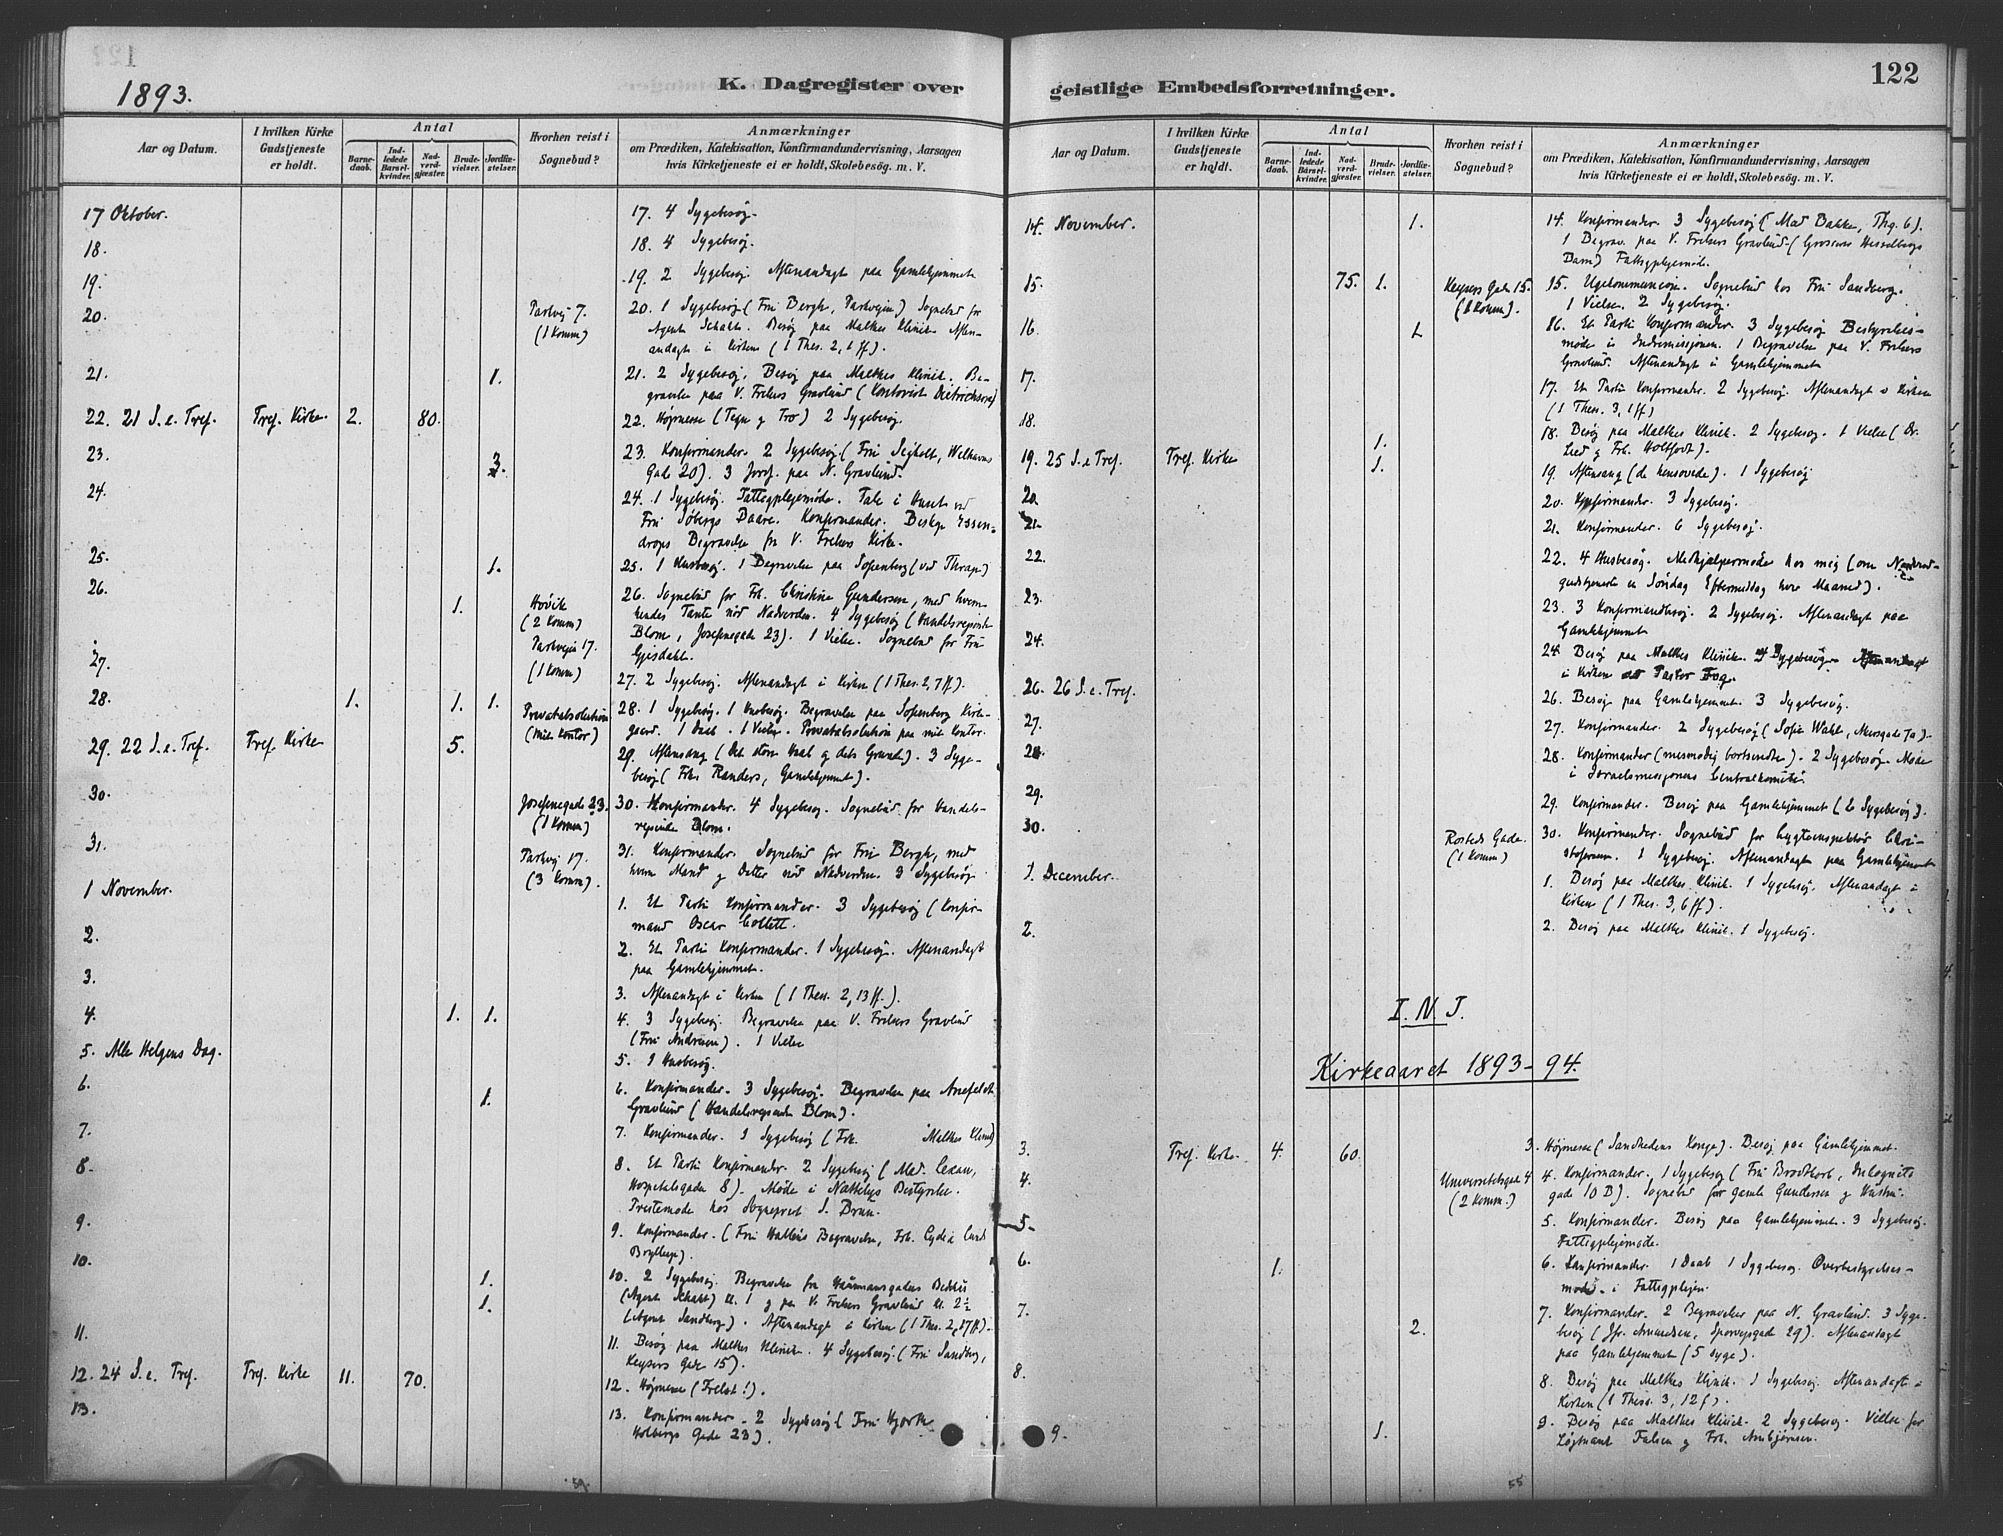 1893.
K. Dagregister over
Aar og Datum.
I hvilken Kirke Gudstjeneste er holdt.
Antal
Barnedaab.
Indledede Barselkvinder.
Nadverdgjæster.
Brudevielser.
Jordfæstelser.
Hvorhen reist i Sognebud?
Anmærkninger
om Prædiken, Katekisation, Konfirmandundervisning, Aarsagen
hvis Kirketjeneste ei er holdt, Skolebesøg. m. V.
17 Oktober. 17. 4 Sygebesøg.
18. 18. 4 Sygebesøg.
19. 19. 2 Sygebesøg. Aftenandagt paa Gamlehjemmet
20. Parkvej 7. 20. 1 Sygebesøg (Fru Bergh, Parkvejen) Sognebud for
(1 Komm) Agent Schakt. Besøg paa Malthes Klinik. Aften-
andagt i Kirken (1 Thes. 2, 1 ff).
21. 1. 21. 2 Sygebesøg. Besøg paa Malthes Klinik. Be-
gravelse paa V. Frelsers Gravlund (Kontorist Dietrichson)
22. 21 S. e. Tref. Tref. Kirke 2. 80. 22. Højmesse (Tegn og Tro) 2 Sygebesøg.
23. 3. 23. Konfirmander. 2 Sygebesøg (Fru Welhavns
Gade 20). 3 Jordf. paa N. Gravlund.
24. 24. 1 Sygebesøg. Fattigplejemøde. Tale i Huset ved
Fru Søbergs Baare. Konfirmander. Biskop Essen-
drops Begravelse fra V. Frelsers Kirke.
25. 1. 25. 1 Husbesøg. 1 Begravelse paa Sofienberg (ved Thrap)
26. 1. Høvik 26. Sognebud for Frk. Christine Gundersen, med hvem
(2 Komm) hendes Tante nød Nadverden. 4 Sygebesøg (Handelsrepræs.
Parkvejen 17. Blom, Josefinegade 23). 1 Vielse. Sognebud for Fru
(1 Komm) Gjisdahl.
27. 27. 2 Sygebesøg. Aftenandagt i Kirken (1 Thes. 2, 7 ff).
28. 1. 1. 1. Privatabsolution 28. 1 Sygebesøg. 1 Husbesøg. Begravelse paa Sofienberg Kirke-
(mit Kontor) gaard. 1 Daab. 1 Vielse. Privatabsolution paa mit Kontor.
29. 22 S. e. Tref. Tref. Kirke 5. 29. Aftensang (Det store Kald og dets Grund). 3 Syge-
besøg (Frk. Randers, Gamlehjemmet).
30. Josefinegade 23. 30. Konfirmander. 4 Sygebesøg. Sognebud for Handels-
(1 Komm) rejsende Blom.
31. Parkvej 17. 31. Konfirmander. Sognebud for Fru Bergh, med
(3 Komm). hvem Mand og Datter nød Nadverden. 3 Sygebesøg
1 November. 1. Et Parti Konfirmander. 3 Sygebesøg (Konfir-
mand Oscar Collett.
2. 2. Et Parti Konfirmander. 1 Sygebesøg. Aftenandagt
paa Gamlehjemmet.
3. 3. Aftenandagt i Kirken (1 Thess. 2, 13 ff.).
4. 1. 1. 4. 3 Sygebesøg. Begravelse paa V. Frelsers Gravlund
(Fru Andresen). 1 Vielse
5. Alle Helgens Dag. 5. 1 Husbesøg.
6. 1. 6. Konfirmander. 3 Sygebesøg. Begravelse paa Ankefeldts
Gravlund (Handelsrejsende Blom).
7. 7. Konfirmander. 1 Sygebesøg (Frk. Malthes Klinik)
8. 8. Et Parti Konfirmander. 2 Sygebesøg (Mad.
Hospitalsgaden 8). Møde i Nattelys Bestyrelse.
Præstemøde hos Sogneprest S. Brun.
9. 9. Konfirmander. (Fru Halléns Begravelse, Frk. Lydia
Bryllup).
10. 1. 10. 2 Sygebesøg. Begravelse fra Haumansgades Bedehus
1. (Agent Schakt) Kl. 1 og paa V. Frelsers Gravlund Kl. 2½
( Sandberg). Aftenandagt i Kirken (1 Thes. 2, 17 ff).
11. 11. Besøg paa Malthes Klinik. 4 Sygebesøg (Fru Sandberg,
Keysers Gade 15).
12. 24 S. e. Tref. Tref. Kirke 11. 70. 12. Højmesse (Frelst!).
13. 13. Konfirmander. 2 Sygebesøg (Fru Hjorth
Holbergs Gade 23).
59.
122
geistlige Embedsforretninger.
Aar og Datum.
I hvilken Kirke Gudstjeneste er holdt.
Antal
Barnedaab.
Indledede Barselkvinder.
Nadverdgjæster.
Brudevielser.
Jordfæstelser.
Hvorhen reist i Sognebud?
Anmærkninger
om Prædiken, Katekisation, Konfirmandundervisning, Aarsagen
hvis Kirketjeneste ei er holdt, Skolebesøg. m. V.
14. November. 1. 14. Konfirmander. 3 Sygebesøg (Mad Bakken, Thg. 6).
1 Begrav. paa V. Frelsers Gravlund (Grosserer Hesselbergs
Barn) Fattigplejemøde.
15. 75. 1. Keysers Gade 15. 15. Ugekommunion. Sognebud hos Fru Sandberg.
(1 Komm). 1 Vielse. 2 Sygebesøg.
16. 1. 16. Et Parti Konfirmander. 3 Sygebesøg Bestyrelses-
møde i Indremissjonen. 1 Begravelse paa V. Frelsers
Gravlund. Aftenandagt i Gamlehjemmet
17. 17. Et Parti Konfirmander. 2 Sygebesøg. Aftenandagt i Kirken
(1 Thess. 3, 1 ff)
18. 1. 18. Besøg paa Malthes Klinik. 2 Sygebesøg. 1 Vielse (Dr.
og Frk. Holtfodt).
19. 25 S. e Tref. Tref. Kirke 1. 19. Aftensang (de hensovede). 1 Sygebesøg
20 20. Konfirmander. 3 Sygebesøg.
21. 21. Konfirmander. 6 Sygebesøg.
22. 22. 4 Husbesøg. Medhjælpermøde hos mig (om Nadverd-
gudstjeneste en Søndag Eftermiddag hver Maaned).
23. 23. 3 Konfirmandbesøg. 2 Sygebesøg. Aftenandagt paa
Gamlehjemmet
24. 24. Besøg paa Malthes Klinik. 4 Sygebesøg. Aftenandagt
i Kirken Pastor
26. 26 S. e. Tref. 26. Besøg paa Gamlehjemmet. 3 Sygebesøg.
27. 27. Konfirmander. 2 Sygebesøg (Sofie Wahl, 7a).
28. 28. Konfirmander ( bortsendte). 2 Sygebesøg. Møde
i Israelsmissjonens Centralkomite.
29. 29. Konfirmander. Besøg paa Gamlehjemmet (2 Sygebesøg).
30. Rosteds Gade. 30. Konfirmander. Sognebud for Lygteinspektør Chri-
(1 Komm) stofersen. 1 Sygebesøg. Aftenandagt paa Gamlehjemmet
1. December. 1. Besøg paa Malthes Klinik. 1 Sygebesøg. Aftenandagt i
Kirken (1 Thes. 3, 6 ff).
2. 2. Besøg paa Malthes Klinik. 1 Sygebesøg.
I. N. J.
Kirkeaaret 1893-94.
3. Tref. Kirke. 4. 60. 3. Højmesse (Sandhedens Konge). Besøg paa Gamlehjemmet.
4. Universitetsgad 4 4. Konfirmander. 1 Sygebesøg (Fru Brodtkorb, Incognito
(2 Komm.) gade 10 B). Sognebud for gamle Gundersen og Hustru.
5. 5. Konfirmander. Besøg paa Gamlehjemmet. 3 Sygebesøg.
Fattigplejemøde.
6. 1. 6. Konfirmander 1 Daab 1 Sygebesøg. Overbestyrelses-
møde i Fattigplejen.
7. 2. 7. Konfirmander. 2 Begravelser paa N. Gravlund. 3 Syge-
besøg (Jfr. Amundsen, Sporvejsgade 29). Aftenandagt
paa Gamlehjemmet (5 syge).
8. 8. Besøg paa Malthes Klinik. 1 Sygebesøg. Aftenandagt i
Kirken (1 Thess. 3, 12 f).
9. 1. 9. Besøg paa Malthes Klinik. 2 Sygebesøg. Vielse for
Løjtnant Falsen og Frk. Arnbjørnsen.
55